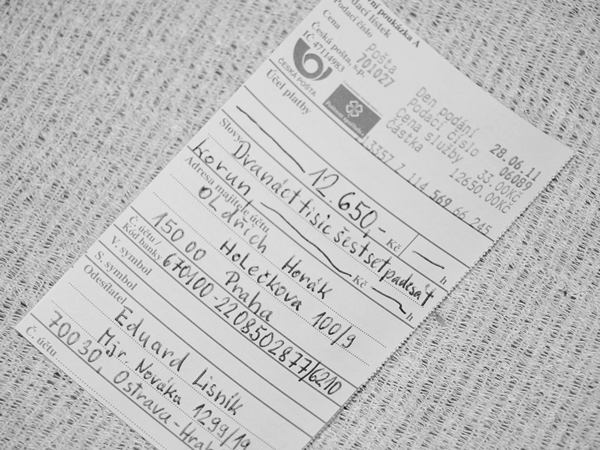 ní poukázka A
Podací lístek
Podací číslo
Cena
Česká pošta, s.p.
IČ 47114983
ČESKÁ POŠTA
Pošta
701027
Den podání 28.06.11
Podací číslo 06089
Cena služby 33.00Kč
Částka 12650.00Kč
13357 7 114 569 66 245
Účel platby
12.650,- Kč h
Slovy Dvanácttisícšestsetpadesát
korun Kč h
Adresa majitele účtu
Oldřich Horák
Holečkova 100/9
150 00 Praha
Č. účtu/
Kód banky 670100-2208502877/6210
V. symbol
S. symbol
Odesílatel
Eduard Lisník
Mjr. Nováka 1299/19
700 30, Ostrava-Hrab
Č. účtu